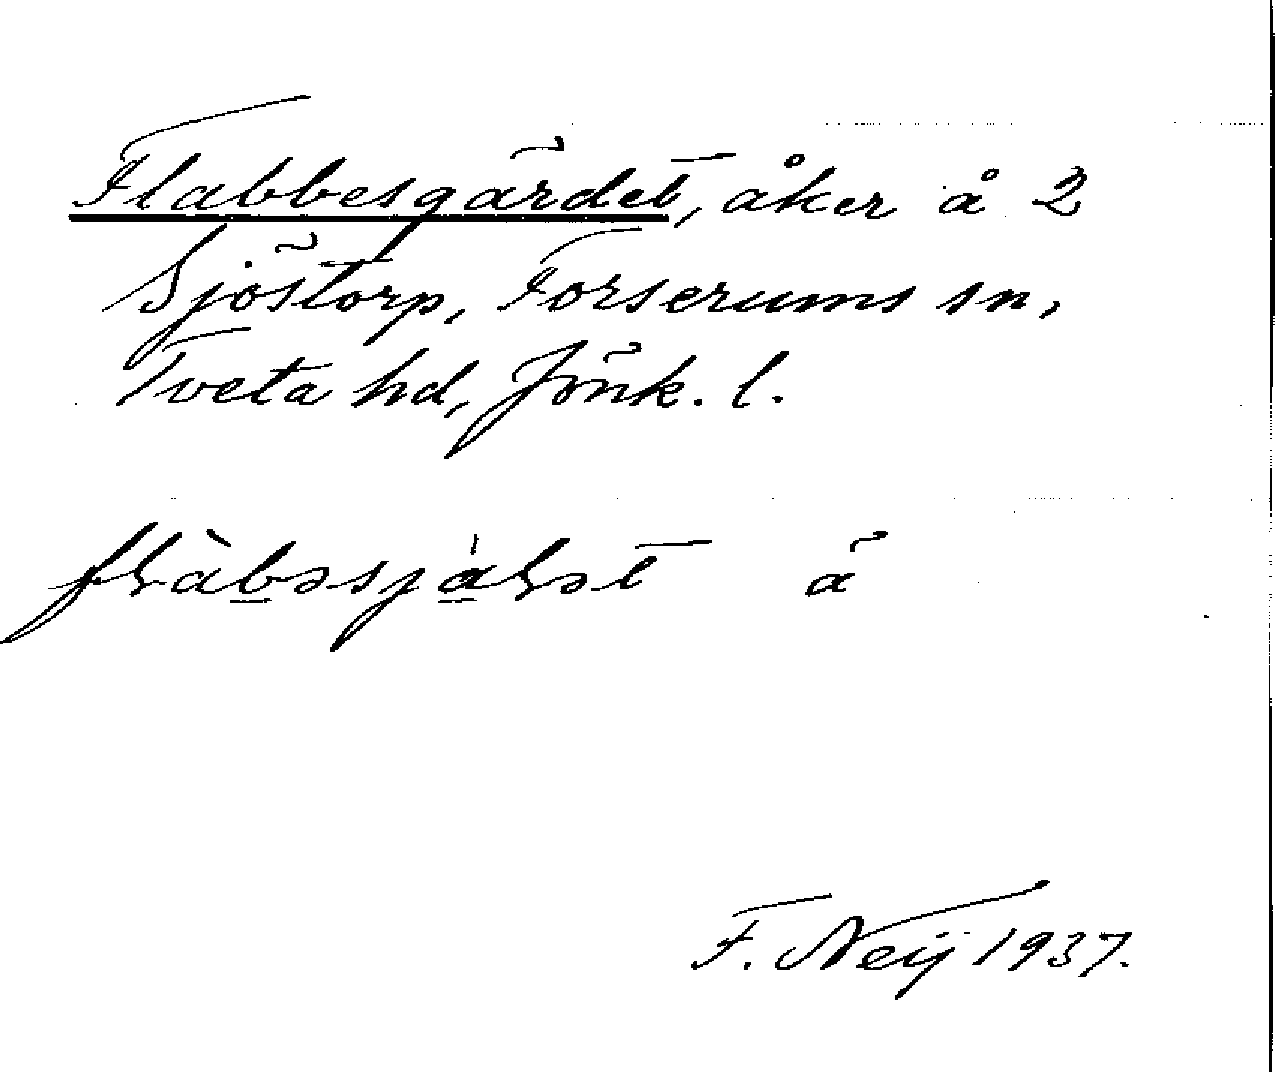 Flabbesgärdet, åker å 2
Sjöstorp, Forserums sn,
Tveta hd, Jönk. l.
ä
F. Neij 1937.